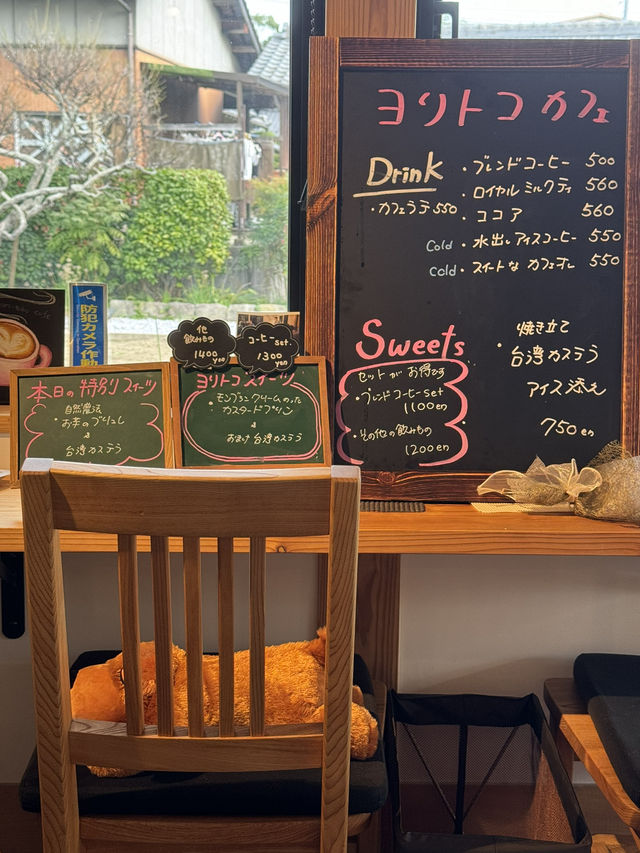 ヨリトコ カフェ
Drink
・ブレンドコーヒー 500
・ロイヤルミルクティ 560
・カフェラテ 550
・ココア 560
Cold・水出しアイスコーヒー 550
Cold・スイートな カフェオレ 550
Sweets
セットが お得です
・ブレンドコーヒーset
1100en
・その他の飲みもの
1200en
焼き立て
・台湾カステラ
アイス添え
750en
他
飲みもの
1400yen
コーヒーset.
1300yen
本日の特別スイーツ
自然魔法
・お芋のブリュレ
&
台湾カステラ
ヨリトコスイーツ
・モンブランクリームのった
カスタードプリン
&
おまけ 台湾カステラ
防犯カメラ作動